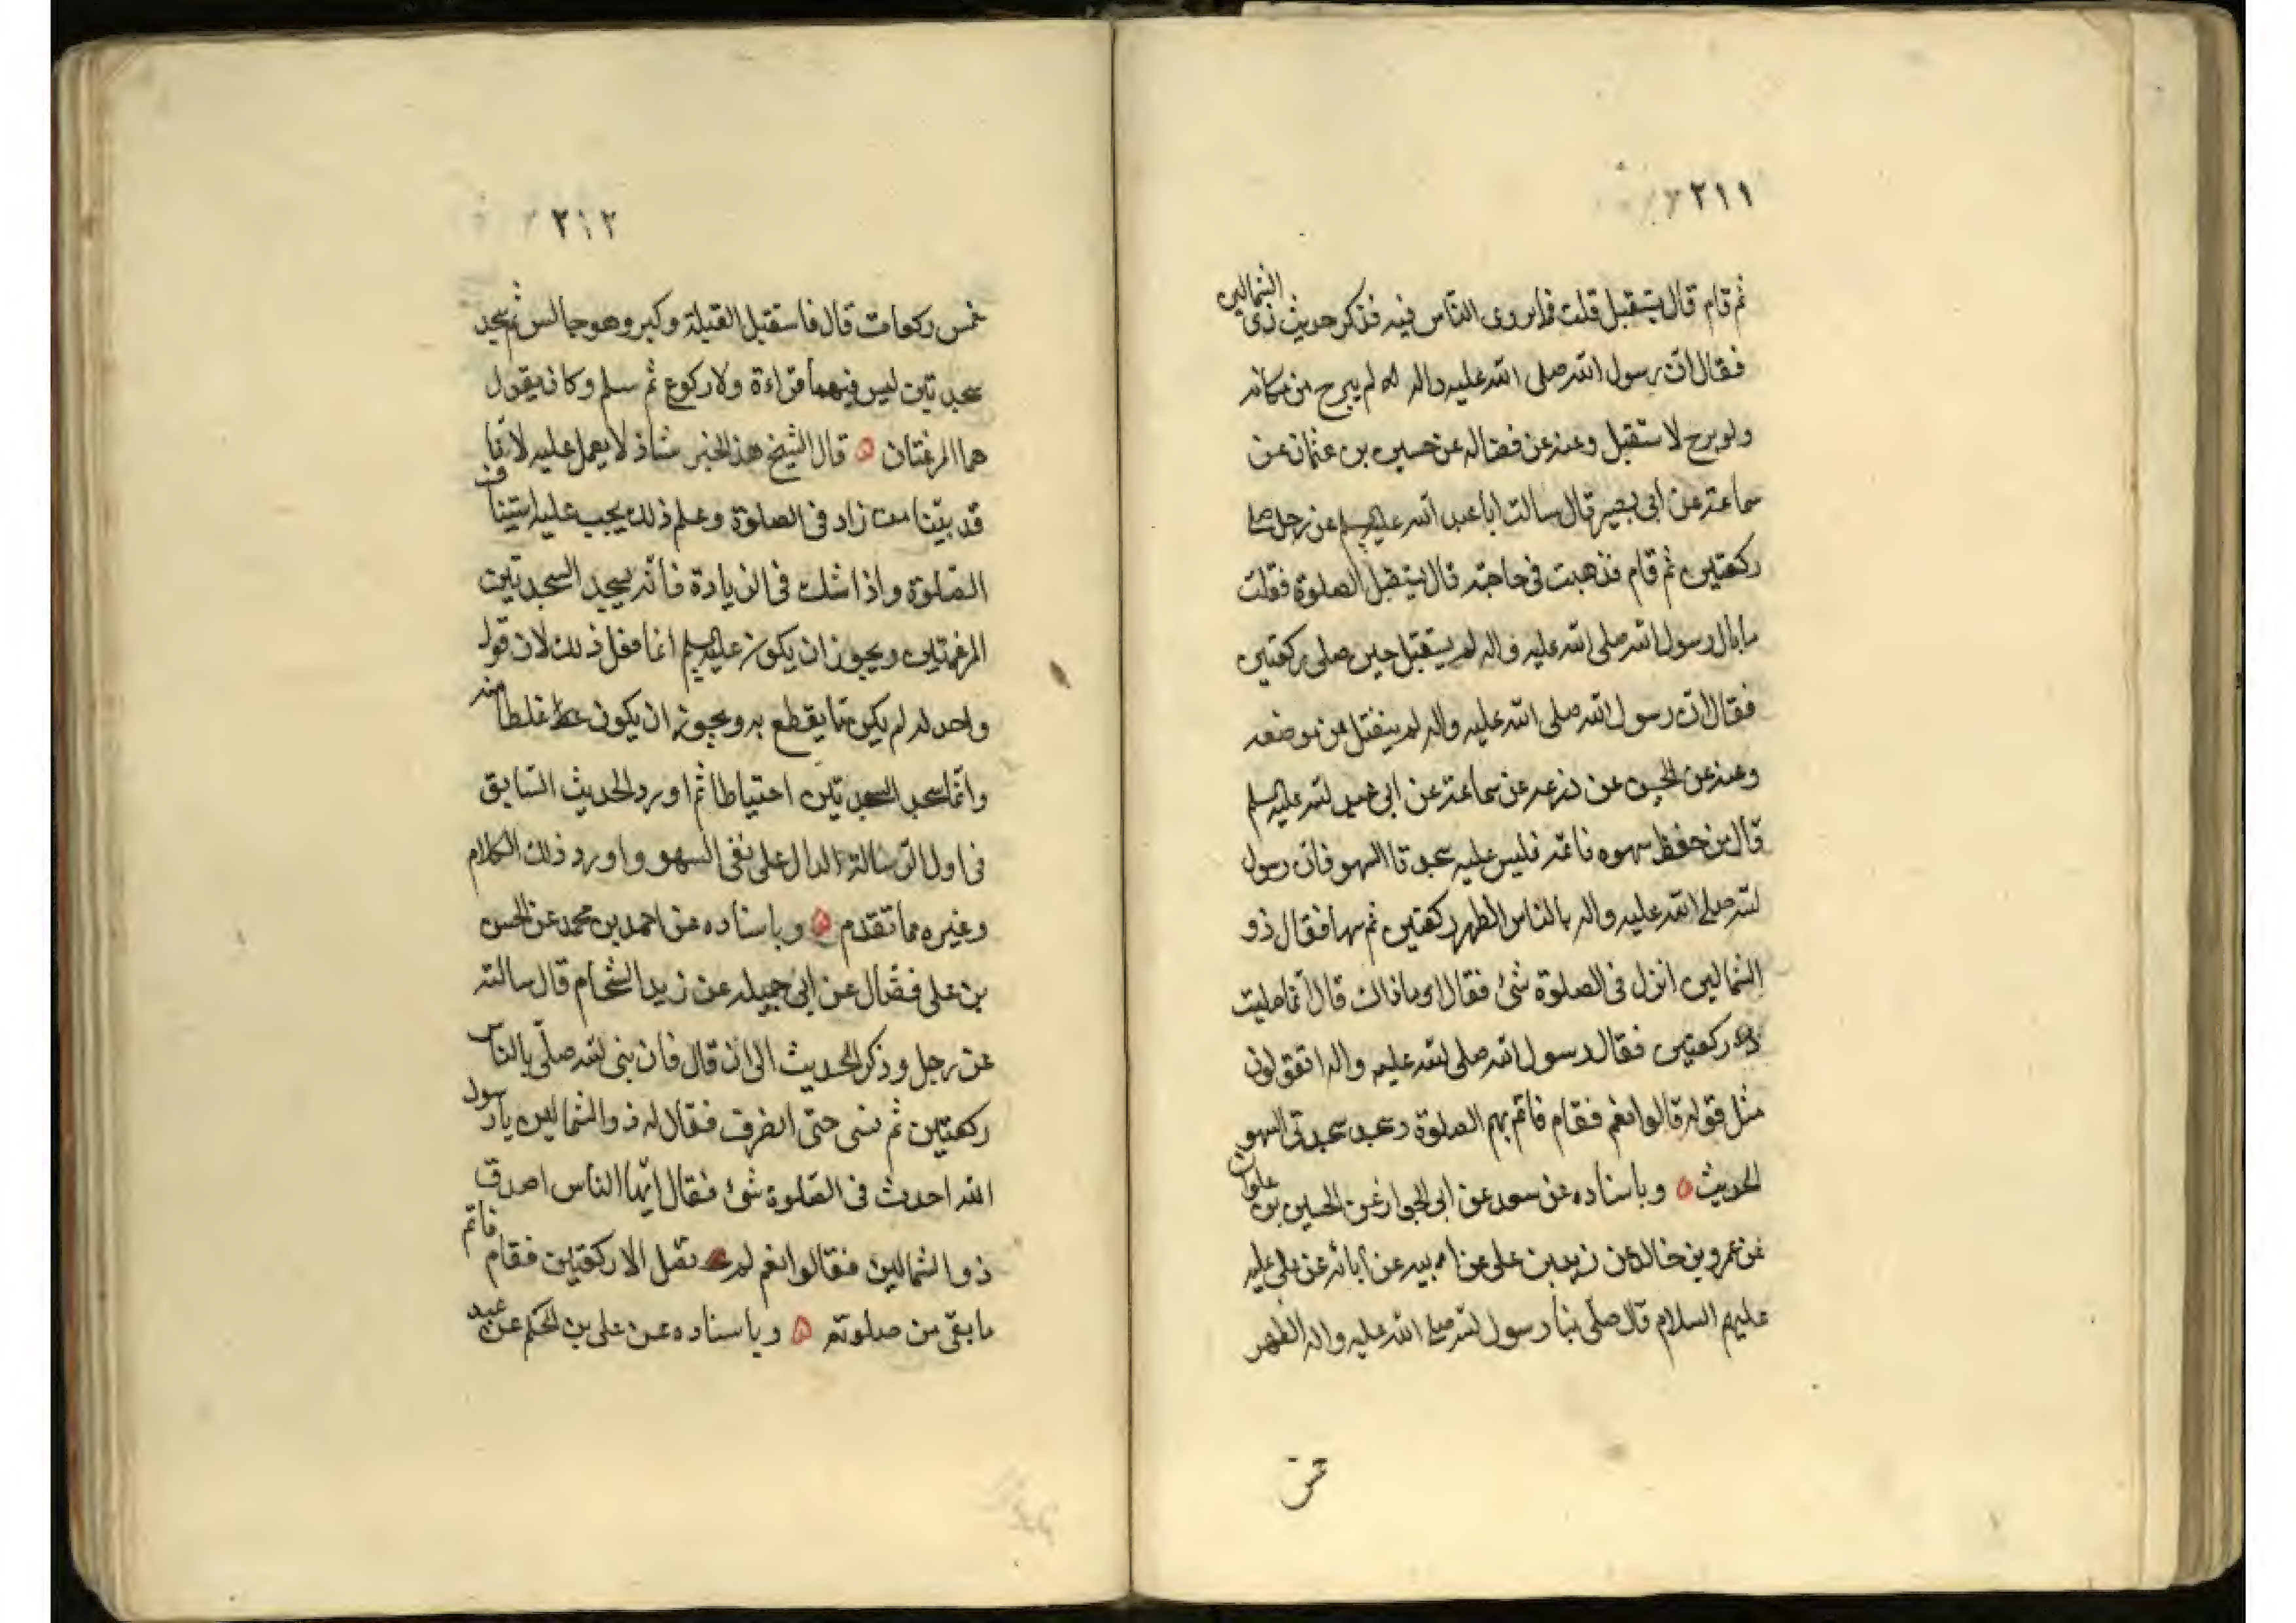 ٢١١
ثم قام قال يستقبل قلت فما يروى الناس فيه فذكر حديث ذى الشمالين
فقال ان رسول الله صلى الله عليه واله لم يبرح من مكانه
ولو برح لاستقبل وعنه عن فضاله عن حسين بن عثمان عن
سماعة عن ابى بصير قال سالت ابا عبد الله عليه السلم عن رجل صلى
ركعتين ثم قام فذهبت فى حاجته قال يستقبل الصلوة فقلت
ما بال رسول الله صلى الله عليه واله لم يستقبل حين صلى ركعتين
فقال ان رسول الله صلى الله عليه واله لم ينفتل من موضعه
وعنه عن الحسن عن زرعه عن سماعة عن ابى عبد الله عليه السلم
قال من حفظ سهوه فاتمه فليس عليه سجدتا السهو فان رسول
الله صلى الله عليه واله بالناس الظهر ركعتين ثم سها فقال ذو
الشمالين انزل فى الصلوة شئ فقال او ما ذاك قال انما صليت
ركعتين فقال رسول الله صلى الله عليه واله اتقولون
مثل قوله قالوا نعم فقام فاتم بهم الصلوة وسجد سجدتى السهو
الحديث ٥ وباسناده عن سعد عن ابى الجوازعن الحسين بن علوان
عن عمرو بن خالد عن زيد بن على عن ابائه عن على عليه
عليهم السلام قال صلى بنا رسول الله صلى الله عليه واله الظهر
خمس
٢١٢
خمس ركعات قال فاستقبل القبلة وكبر وهو جالس ثم سجد
سجدتين ليس فيهما قراءة ولا ركوع ثم سلم وكان يقول
هما المرغمتان ٥ قال الشيخ هذا الخبر شاذ لا يعمل عليه لانا
قد بيّنا من زاد فى الصلوة وعلم ذلك يجب عليه استيناف
الصّلوة واذا شك فى الزيادة فانه يسجد السجدتين
المرغمتين ويجوز ان يكون عليه السلم انما فعل ذلك لان قول
واحد له لم يكن مما يقطع به ويجوز ان يكون غلطا منه
وانّما سجد السجدتين احتياطا ثم اورد الحديث السّابق
فى اول الرّسالة الدال على نفى السهو واورد ذلك الكلام
وغيره مما تقدم ٥ وباسناده عن احمد بن محمد عن الحسن
بن على فضّال عن ابى جميله عن زيد الشحام قال سالته
عن رجل وذكر الحديث الى ان قال فان نبى الله صلّى بالناس
ركعتين ثم نسى حتى انصرف فقال له ذو الشمالين يا رسول
الله احدث فى الصّلوة شئ فقال ايّها الناس اصدق
ذو الشمالين فقالوا نعم لم تصل الا ركعتين فقام فاتم
ما بقى من صلوته ٥ وباسناده عن على بن الحكم عن عبد